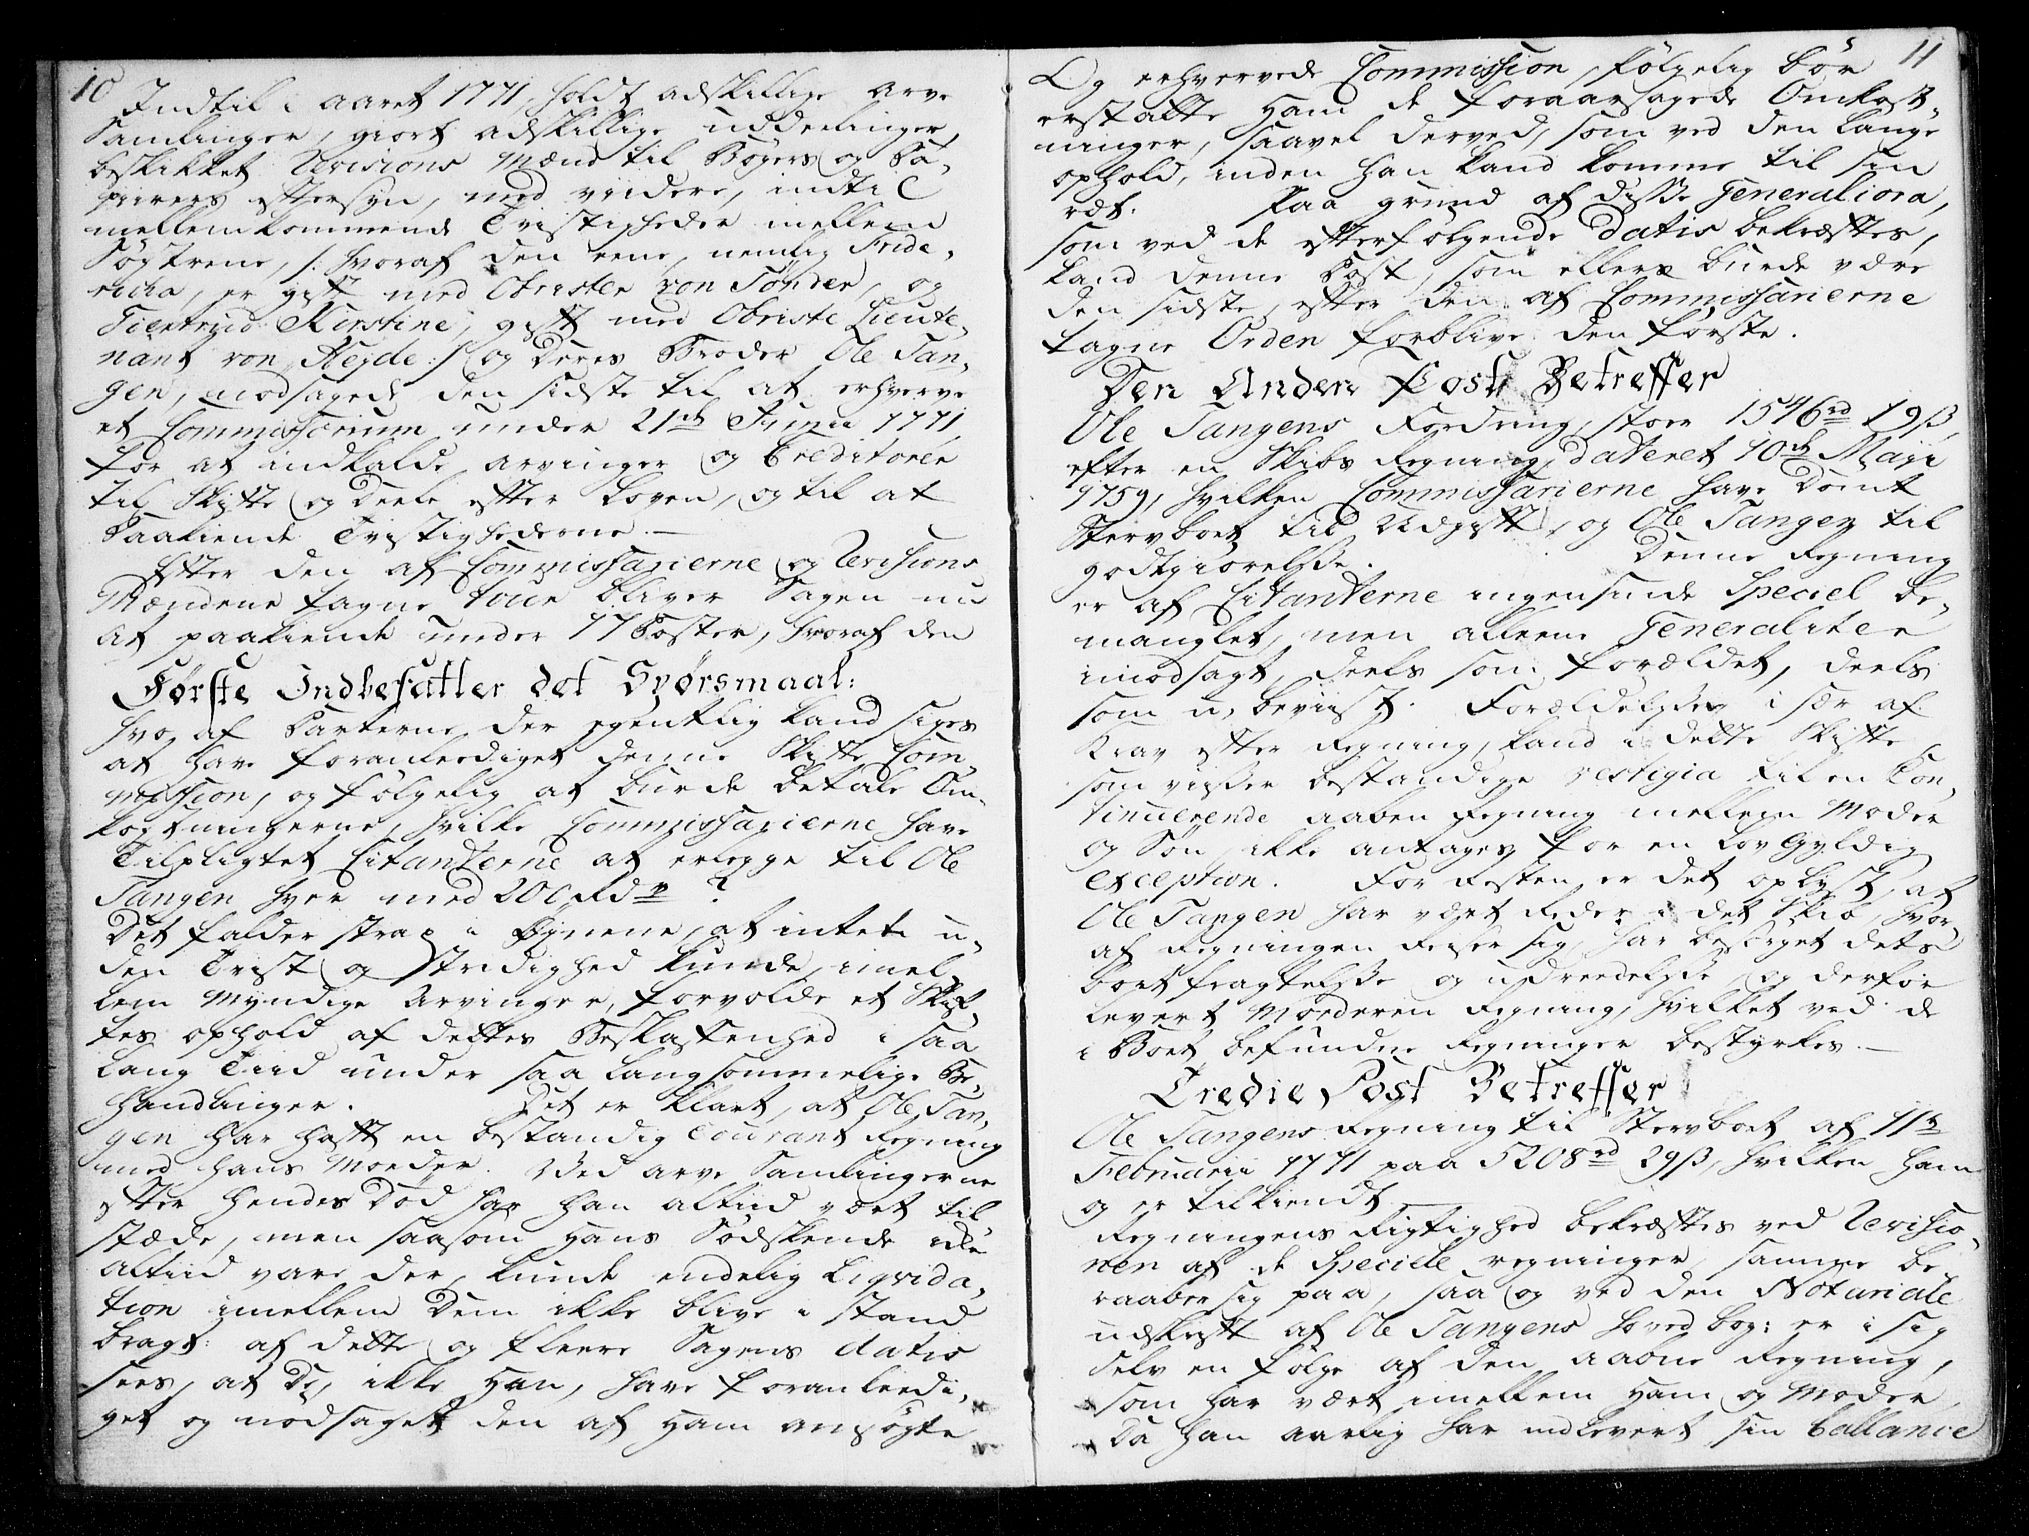 10
Indtil i aaret 1771, holdt adskillige Arve
Samlinger, giort adskillige uddeelinger,
beskikket Revisions Mænd til Bøgers og Pa-
pirers eftersyn, med viidere, indtil
mellemkommende Tvistigheder mellem
Søstrene, /: hvoraf den eene, nemlig Fride-
richa, er gift med Obrister von Sønder, og
Giertryd Kirstine, gift med Obriste Lieute-
nant von Heyde :/ og Deres Broder Ole Tan-
gen, nødsagede den sidste til at erhverve
et Commissorium under 21de Junii 1771,
for at indkalde Arvinger og Creditorer
til Skifte og Deele efter Loven, og til at
Paakiende Tvistighederne. —
Efter den af Commissarierne og Revisions
Mændene tagne tour bliver Sagen nu
at paakiende under 17 Poster, hvoraf den
Første Indbefatter det Spørsmaal:
Hvo af Parterne der egentlig kand siges
at have foranlediget denne Skifte Com-
mission, og følgelig at burde betale Om-
kostningerne, hvilke Commissarierne have
Tilpligtet Citanterne at erlegge til Ole
Tangen hver med 200 Rdr ?
Det falder strax i Øynene, at intet u-
den Tvist og Stridighed kunde, imel-
lem Myndige Arvinger, forvolde et Skif-
tes ophold af dettes Beskaffenhed i saa
lang Tiid under saa langsommelige Be-
handlinger. Det er klart, at Ole Tan-
gen har haft en bestandig Courant Regning
med hans Moeder. Ved Arve Samlingerne
efter hendes Død har han altiid vært til
stæde, men saasom Hans Sødskende ikke
altiid vare der, kunde endelig Liqvida-
tion imellem Dem ikke blive i stand
bragt: af dette og fleere Sagens datis
sees, at De, ikke Han, have foranleedi-
get og nødsaget den af Ham ansøgte
11
Og erhvervede Commission, følgelig bør
erstatte Ham de foraarsagede Omkost-
ninger, saavel derved, som ved den lange
ophold, inden han kand komme til sin
ræt. Paa grund af disse Generaliora,
som ved de efterfølgende datis bekræftes,
kand denne Post, som ellers burde være
den sidste, efter den af Commissarierne
tagne Orden forblive den første.
Den Anden Post Betreffer
Ole Tangens Fordring, stoer 1546 rd 19 ß,
efter en Skibs Regning, dateret 10de Maji
1759, hvilken Commissarierne have Dømt
Stervboet til Udgift, og Ole Tangen til
godtgiørelsse. Denne Regning
er af Citanterne ingensinde Speciel be-
manglet, men alleene Generaliter
imodsagt, deels som forældet, deels
som u-beviist. Forældelsen i sær af
Krav efter Regning, kand i dette Skifte
som viisser bestandige vestigia til en Con-
tinuerende aaben Regning mellem Moder
og Søn, ikke antages for en Lovgyldig
exception. For Resten er det oplyst, at
Ole Tangen har været Reder i det Skib, hvor-
af Regningen Reiser sig, har besørget dets
bortfragtelsse og udreedelsse, og derfor
levert Moderen Regning, hvilket ved de
i Boet befundne Regninger bestyrkes. —
Tredie Post Betreffer
Ole Tangens Regning til Stervboet af 11te
Februarii 1771 paa 5208 rd 29 ß, hvilken ham
og er tilkiendt.
Regningens Rigtighed bekræftes ved Revisio-
nen af de Speciele regninger, samme be-
raaber sig paa, saa og ved den Notariale
udskrift af Ole Tangens Hoved bog: er i sig
selv en følge af den aabne Regning,
som har vært imellem Ham og Moder,
Da han aarlig har indlevert sin ballance